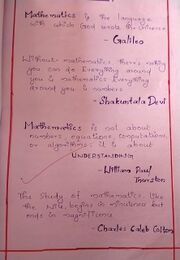 Mathematics is the language
with which God wrote the Universe
- Galileo
Without mathematics there's nothing
you can do Everything around
you is mathematics Everything
around you is numbers
- Shakuntala Devi
Mathematics is not about
numbers, equations, computations,
or algorithms it is about
UNDERSTANDING
- William Paul
Thurston
The Study of mathematics, like
the Nile, begins in minuteness but
ends in magnificence
- Charles Caleb Colton